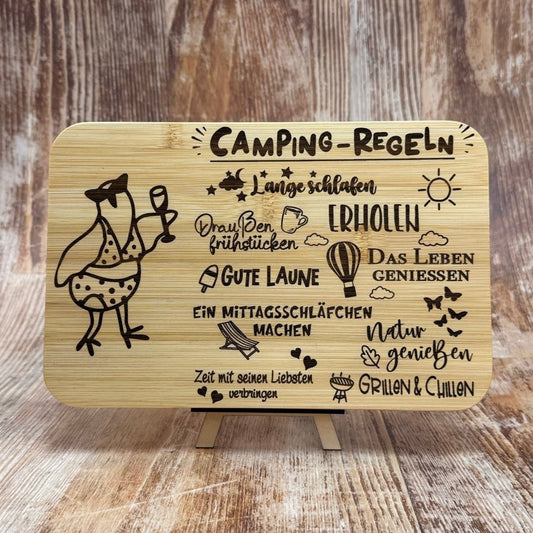 CAMPING-REGELN
Lange schlafen
Draußen
frühstücken
ERHOLEN
DAS LEBEN
GENIESSEN
GUTE LAUNE
EIN MITTAGSSCHLÄFCHEN
MACHEN
Natur
genießen
Zeit mit seinen Liebsten
verbringen
GRILLEN & CHILLEN